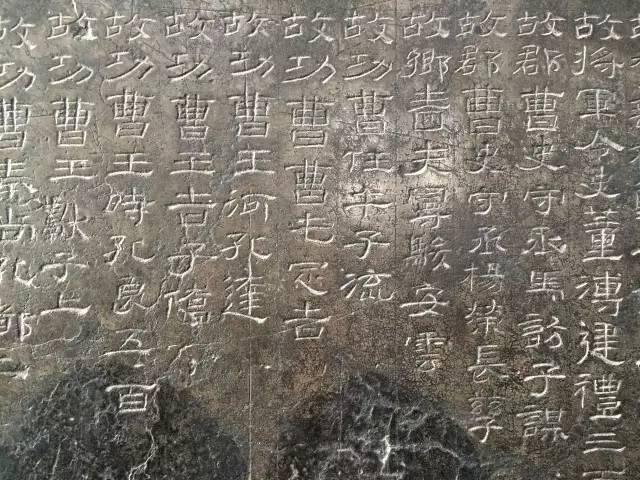 故將軍令史董溥建禮三
故郡曹史守丞馬訪子謀
故郡曹史守丞楊榮長孳
故鄉嗇夫曼駿安雲
故功曹任午子流
故功曹曹屯定吉
故功曹王河孔達
故功曹王吉子僑
故功曹王時孔良五百
故功曹王獻子上
故功曹秦尚孔都